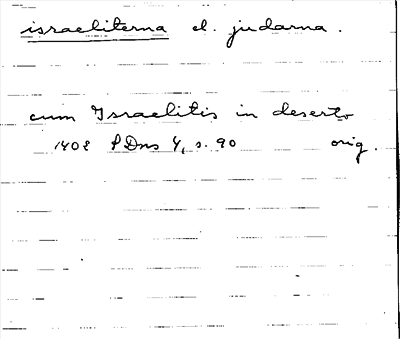 israeliterna el. judarna.
cum Israelitis in deserto
1408 SDns 4, s. 90 orig.